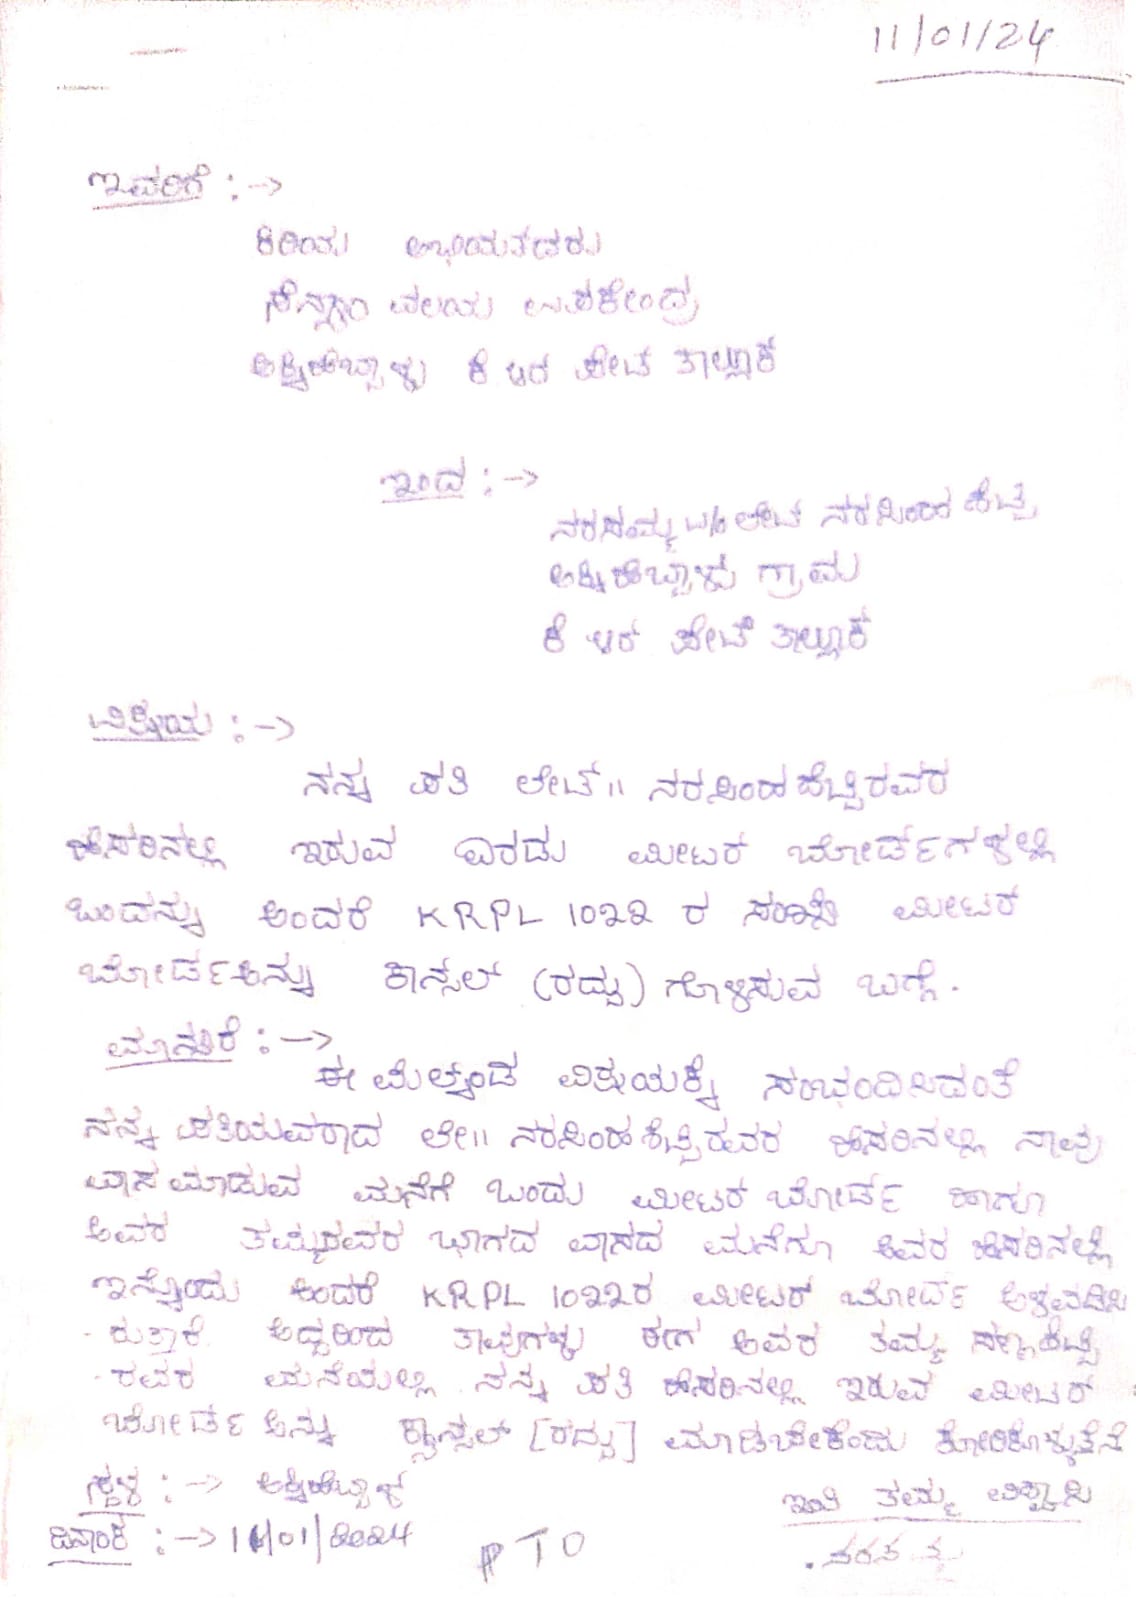 11/01/24
ಇವರಿಗೆ :->
ಕಿರಿಯ ಅಭಿಯಂತರರು
ವಲಯ ಉಪಕೇಂದ್ರ
ಅಕ್ಕಿಹೆಬ್ಬಾಳು ಕೆ ಆರ್ ಪೇಟೆ ತಾಲ್ಲೂಕ್
ಇಂದ :->
ನರಸಮ್ಮ w/o ಲೇಟ್ ನರಸಿಂಹ ಶೆಟ್ಟಿ
ಅಕ್ಕಿಹೆಬ್ಬಾಳು ಗ್ರಾಮ
ಕೆ ಆರ್ ಪೇಟೆ ತಾಲ್ಲೂಕ್
ವಿಷಯ :->
ನನ್ನ ಪತಿ ಲೇಟ್ ॥ ನರಸಿಂಹಶೆಟ್ಟಿರವರ
ಹೆಸರಿನಲ್ಲಿ ಇರುವ ಎರಡು ಮೀಟರ್ ಬೋರ್ಡ್‌ಗಳಲ್ಲಿ
ಒಂದನ್ನು ಅಂದರೆ KRPL 1022 ರ ಮೀಟರ್
ಬೋರ್ಡ್‌ಅನ್ನು ಕಾನ್ಸಲ್ (ರದ್ದು) ಗೊಳಿಸುವ ಬಗ್ಗೆ.
:->
ಈ ಮೆಲ್ಕಂಡ ವಿಷಯಕ್ಕೆ ಸಂಭಂದಿಸಿದಂತೆ
ನನ್ನ ಪತಿಯವರಾದ ಲೇ॥ ನರಸಿಂಹಶೆಟ್ಟಿರವರ ಹೆಸರಿನಲ್ಲಿ ನಾವು
ವಾಸಮಾಡುವ ಮನೆಗೆ ಒಂದು ಮೀಟರ್ ಬೋರ್ಡ್ ಹಾಗೂ
ಅವರ ತಮ್ಮರವರ ಭಾಗದ ವಾಸದ ಮನೆಗೂ ಅವರ ಹೆಸರಿನಲ್ಲಿ
ಇನ್ನೊಂದು ಅಂದರೆ KRPL 1022ರ ಮೀಟರ್ ಬೋರ್ಡ್ ಅಳವಡಿಸಿ
-ರುತ್ತಾರೆ. ಆದ್ದರಿಂದ ತಾವುಗಳು ಈಗ ಅವರ ತಮ್ಮ ಸಣ್ಣಶೆಟ್ಟಿ
-ರವರ ಮನೆಯಲ್ಲಿ ನನ್ನ ಪತಿ ಹೆಸರಿನಲ್ಲಿ ಇರುವ ಮೀಟರ್
ಬೋರ್ಡ್ ಅನ್ನು ಕ್ಯಾನ್ಸಲ್ [ರದ್ದು] ಮಾಡಿಬೇಕೆಂದು ಕೋರಿಕೊಳ್ಳುತೆನೆ
ಸ್ಥಳ :-> ಅಕ್ಕಿಹೆಬ್ಬಾಳ್
ಇಂತಿ ತಮ್ಮ ವಿಶ್ವಾಸಿ
ದಿನಾಂಕ :-> 11/01/2024
PTO